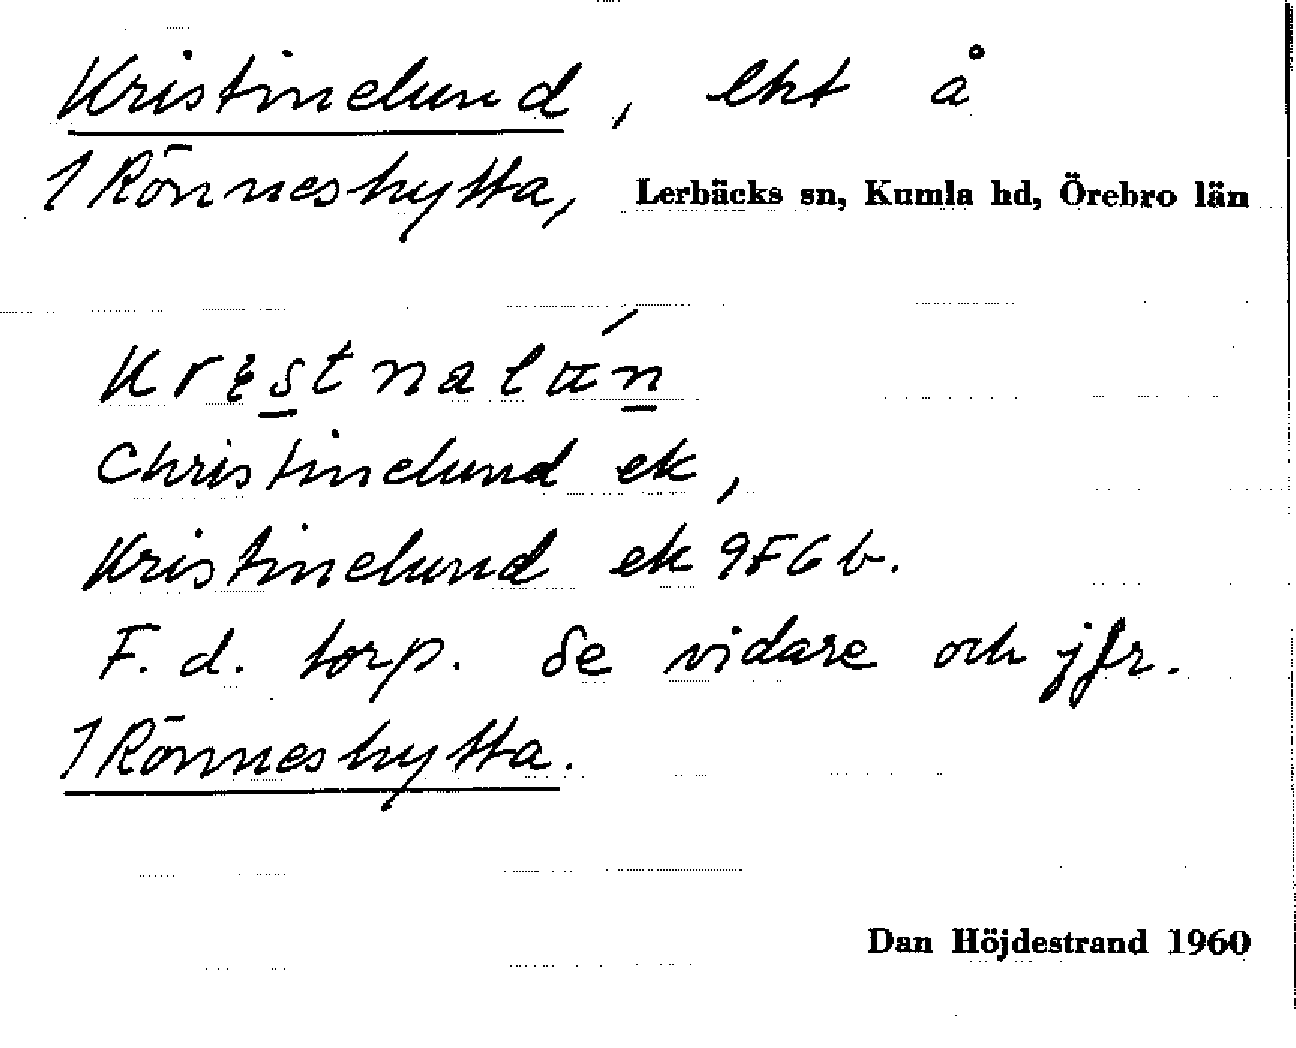 Kristinelund, lht å
1 Rönneshytta, Lerbäcks sn, Kumla hd, Örebro län
Christinelund ek,
Kristinelund ek 9F6b.
F. d. torp. Se vidare och jfr.
1 Rönneshytta.
Dan Höjdestrand 1960